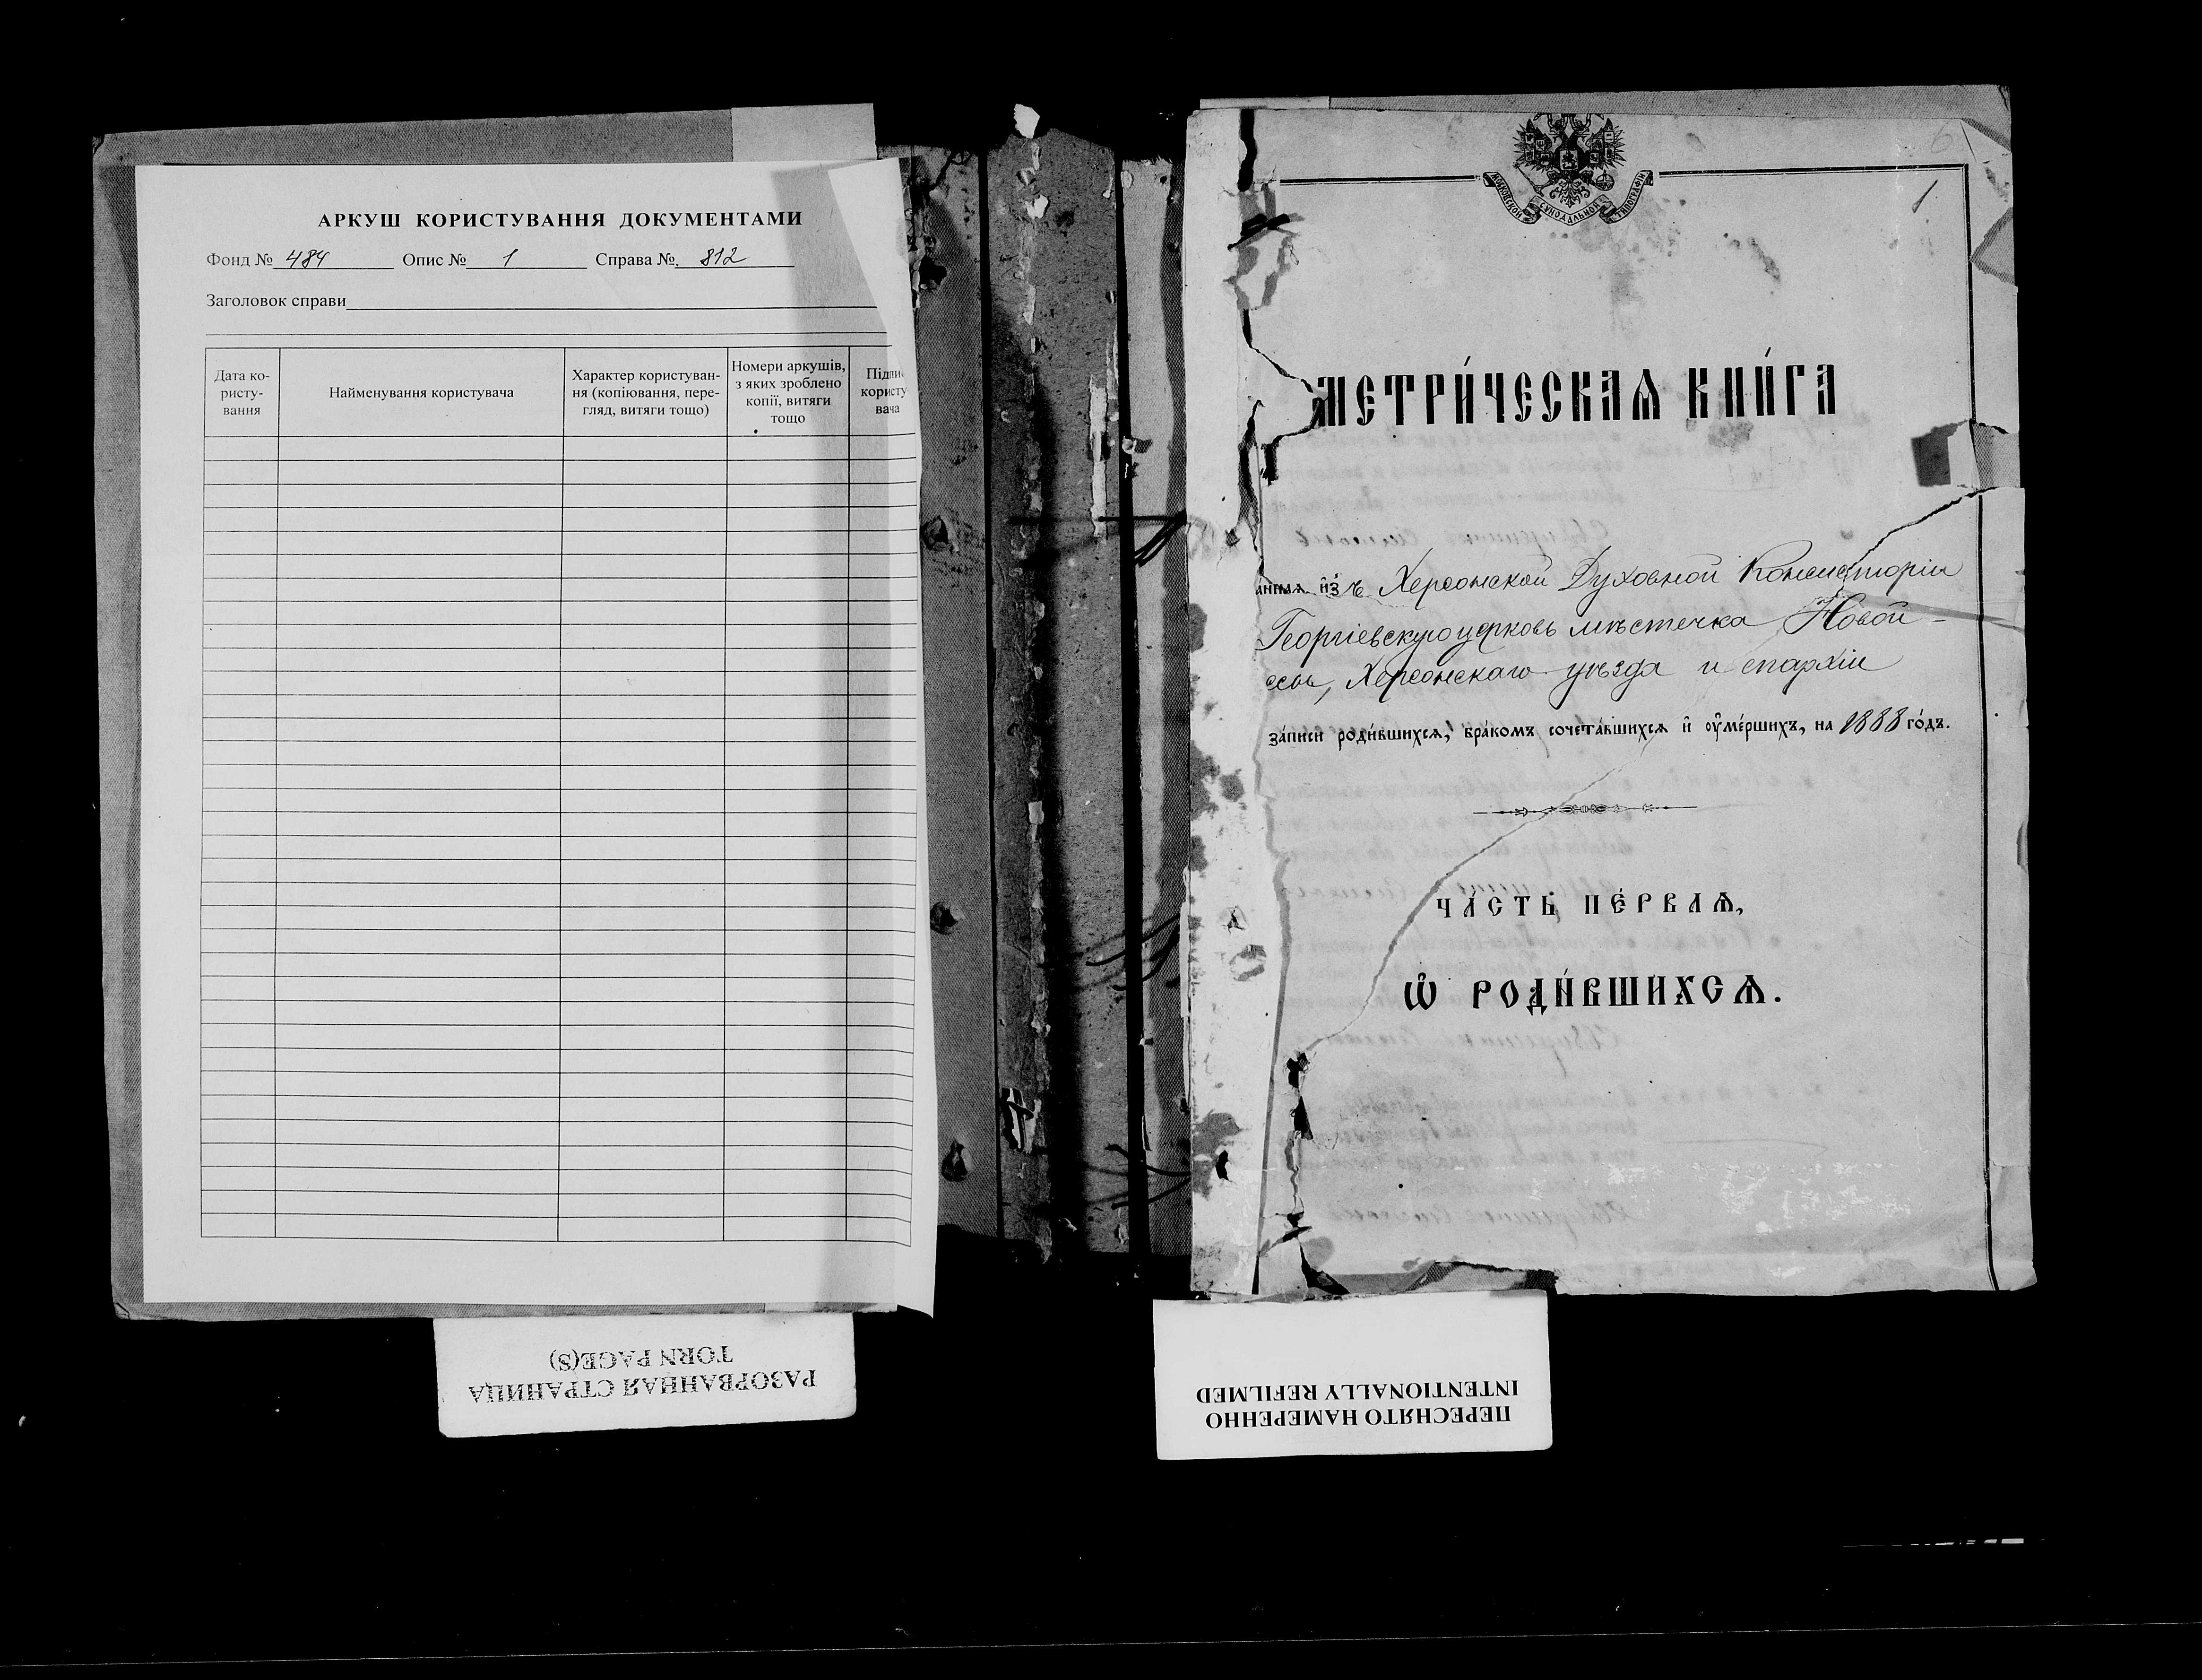 АРКУШ КОРИСТУВАННЯ ДОКУМЕНТАМИ
Фонд № 484 Опис № 1 Справа № 812
Заголовок справи
Дата ко-
ристу-
вання
Найменування користувача
Характер користуван-
ня (копіювання, пере-
гляд, витяги тощо)
Номери аркушів,
з яких зроблено
копії, витяги
тощо
Підпи
користу
вача
РАЗОРВАННАЯ СТРАНИЦА
TORN PAGE(S)
МОСКОВСКОЙ СѴНОДАЛЬНОЙ ТИПОГРАФІИ
1
МЕТРИ́ЧЕСКАѦ КНИ́ГА
аннаѧ и҆зъ Херсонской Духовной Консисторіи
Георгіевскую церковь мѣстечка Новой-
Херсонскаго уѣзда и епархіи
за́писи роди́вшихсѧ, бра́комъ сочета́вшихсѧ и҆ оу҆ме́ршихъ, на 1888 го́дъ.
ЧА́СТЬ ПЕ́РВАѦ,
Ѡ҆ РОДИ́ВШИХСѦ.
ПЕРЕСНЯТО НАМЕРЕННО
INTENTIONALLY REFILMED